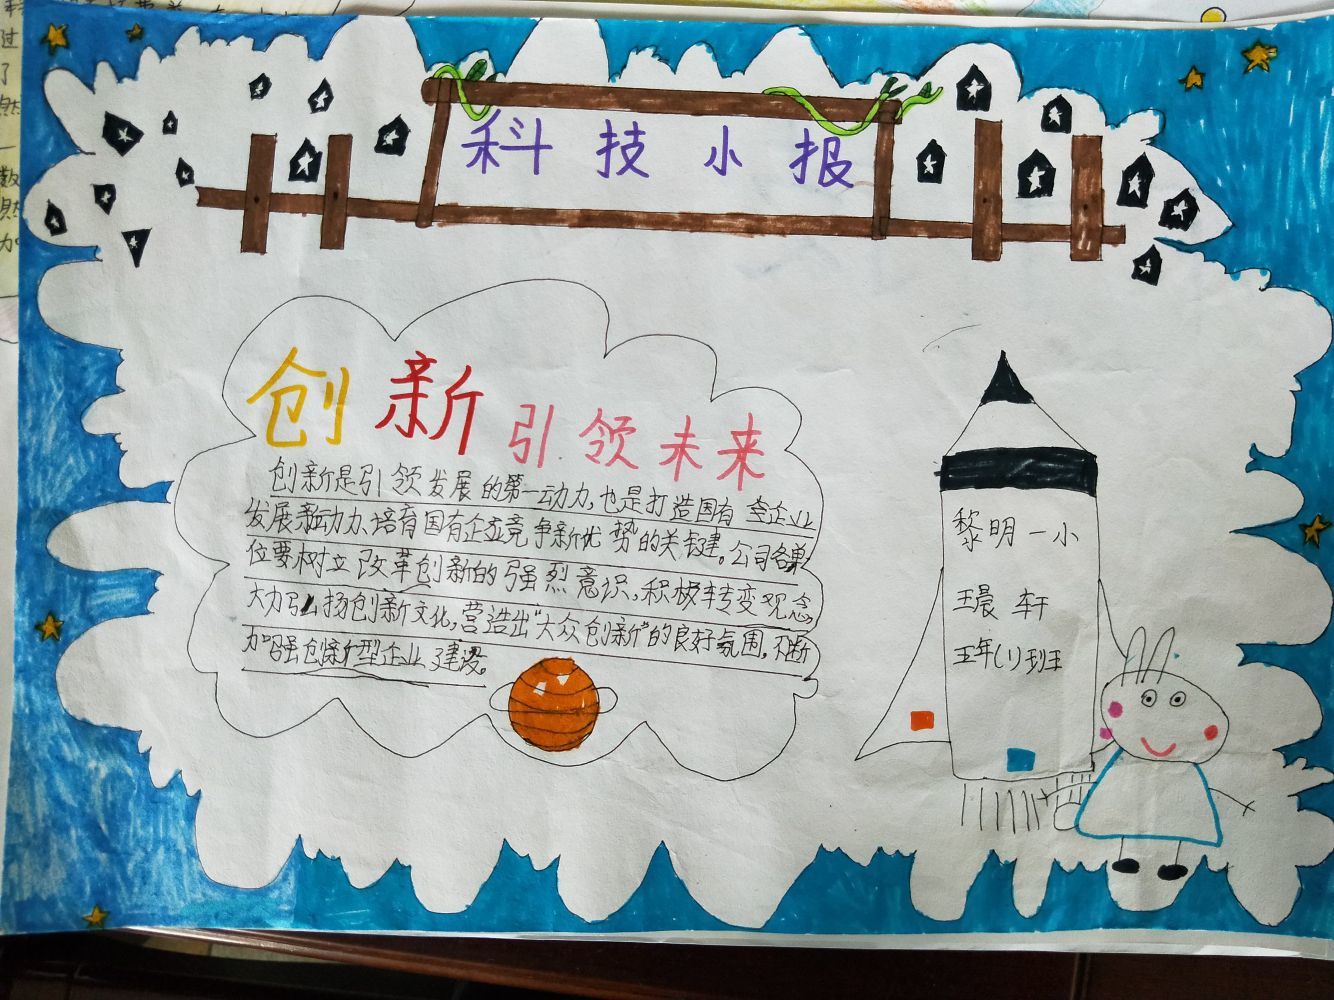 科技小报
创新引领未来
创新是引领发展的第一动力,也是打造国有企业
发展新动力、培育国有企业竞争新优势的关键。公司各单
位要树立改革创新的强烈意识,积极转变观念,
大力弘扬创新文化,营造出“大众创新”的良好氛围,不断
加强创新型企业建设。
黎明一小
王晨轩
五年(1)班
过
了
然
一
数
然
加